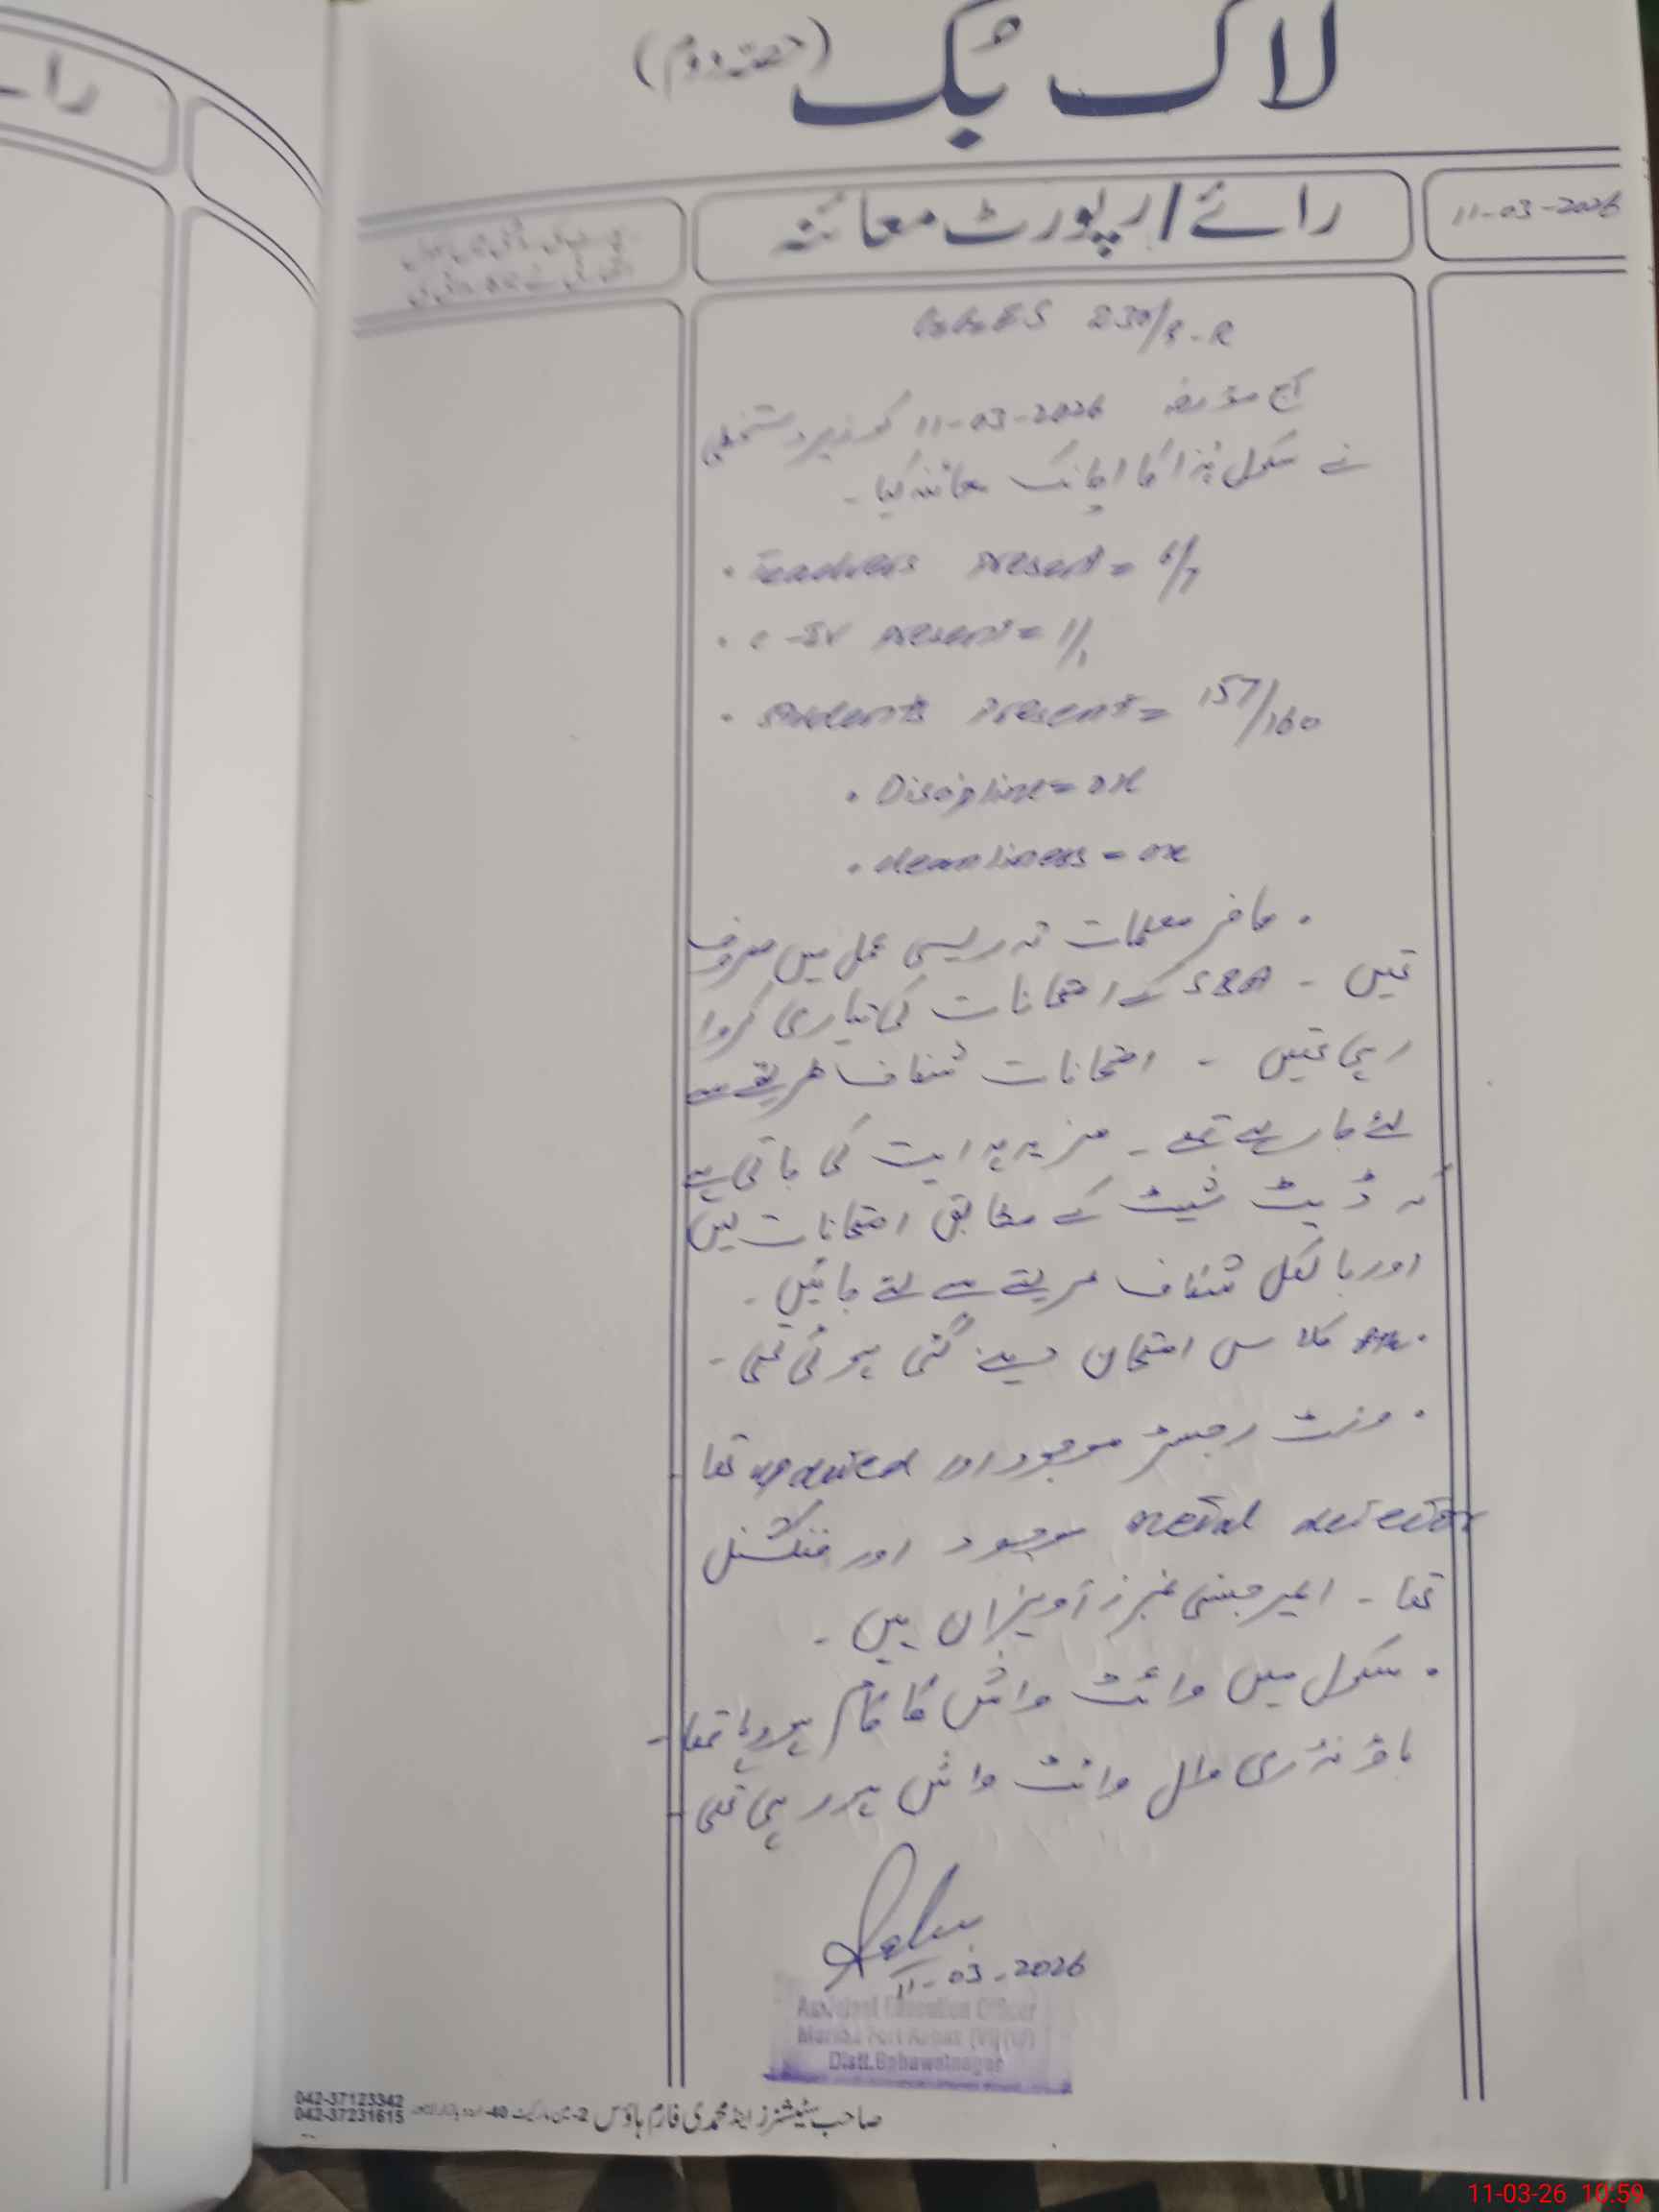 لاگ بُک (حصہ دوم)
11-03-2026
رائے/رپورٹ معائنہ
GGES 230/9-R
آج مورخہ 11-03-2026 کو زیر دستخطی
نے سکول ہٰذا کا اچانک معائنہ کیا۔
• Teachers Present = 6/7
• C-IV Present = 1/1
• Students Present = 157/160
• Discipline = OK
• Cleanliness = OK
• حاضر معلمات تدریسی عمل میں مصروف
تھیں ۔ SBA کے امتحانات کی تیاری کروا
رہی تھیں ۔ امتحانات شفاف طریقے سے
لئے جا رہے تھے ۔ مزید ہدایت کی جاتی ہے
کہ ڈیٹ شیٹ کے مطابق امتحانات لیں
اور بالکل شفاف طریقے سے لئے جائیں ۔
• کلاس امتحان دینے گئی ہوئی تھی ۔
• وزٹ رجسٹر موجود اور updated تھا
metal detector موجود اور فنکشنل
تھا ۔ ایمرجنسی نمبرز آویزاں ہیں ۔
• سکول میں وائٹ واش کا کام ہو رہا تھا ۔
باؤنڈری وال وائٹ واش ہو رہی تھی ۔
11-03-2026
Assistant Education Officer
Markaz Fort Abbas (VI) (W)
Distt. Bahawalnagar
صاحب سٹیشنرز اینڈ محمدی فارم ہاؤس
042-37123342
042-37231615
رائے
11-03-26 10:59